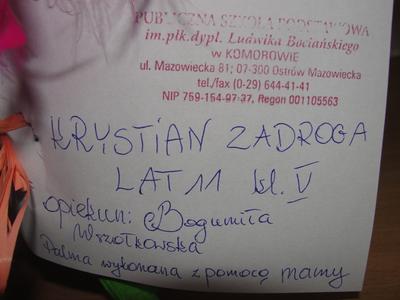 PUBLICZNA SZKOŁA PODSTAWOWA
im.płk.dypl. Ludwika Bociańskiego
w KOMOROWIE
ul. Mazowiecka 81; 07-300 Ostrów Mazowiecka
tel./fax (0-29) 644-41-41
NIP 759-154-97-37, Regon 001105563
KRYSTIAN ZADROGA
LAT 11 kl. V
opiekun: Bogumiła
Wszołkowska
Palma wykonana z pomocą mamy